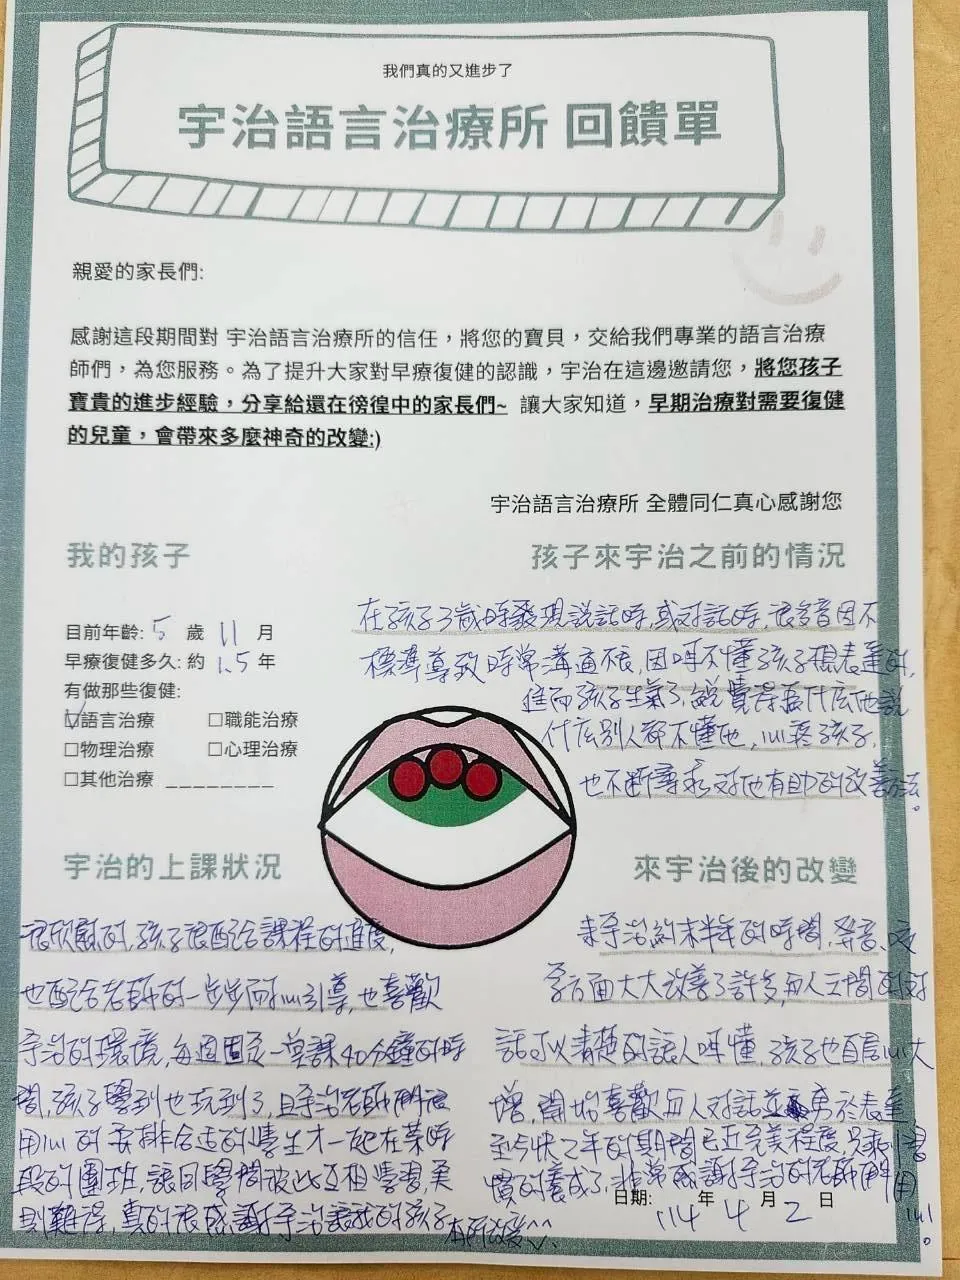 我們真的又進步了
宇治語言治療所 回饋單
親愛的家長們:
感謝這段期間對 宇治語言治療所的信任，將您的寶貝，交給我們專業的語言治療
師們，為您服務。為了提升大家對早療復健的認識，宇治在這邊邀請您，將您孩子
寶貴的進步經驗，分享給還在徬徨中的家長們~ 讓大家知道，早期治療對需要復健
的兒童，會帶來多麼神奇的改變:)
宇治語言治療所 全體同仁真心感謝您
我的孩子
目前年齡: 5 歲 11 月
早療復健多久: 約 1.5 年
有做那些復健:
☑語言治療 □職能治療
□物理治療 □心理治療
□其他治療 ________
孩子來宇治之前的情況
在孩子3歲時發現說話時,或對話時,很多音因不
標準導致時常溝通不良,因聽不懂孩子想表達的,
進而孩子生氣了,總覺得為什麼他說
什麼別人都不懂他,心疼孩子,
也不斷尋求對他有助的改善方法。
宇治的上課狀況
很欣慰的,孩子很配合課程的進度,
也配合老師的一步步耐心引導,也喜歡
宇治的環境,每週固定一堂課40分鐘的時
間,孩子學到也玩到了,且宇治老師們很
用心的安排合適的學生才一起在某時
段的團班,讓同學間彼此互相學習,實
則難得,真的很感謝宇治讓我的孩子
有所改變^^
來宇治後的改變
來宇治約末半年的時間,發音、咬
字方面大大改善了許多,與人之間的對
話可以清楚的讓人聽懂,孩子也自信心大
增,開始喜歡與人對話並勇於表達,
至今快2年的期間已近完美程度,只剩習
慣的養成了,非常感謝宇治的老師們用
心!。
日期: 114 年 4 月 2 日